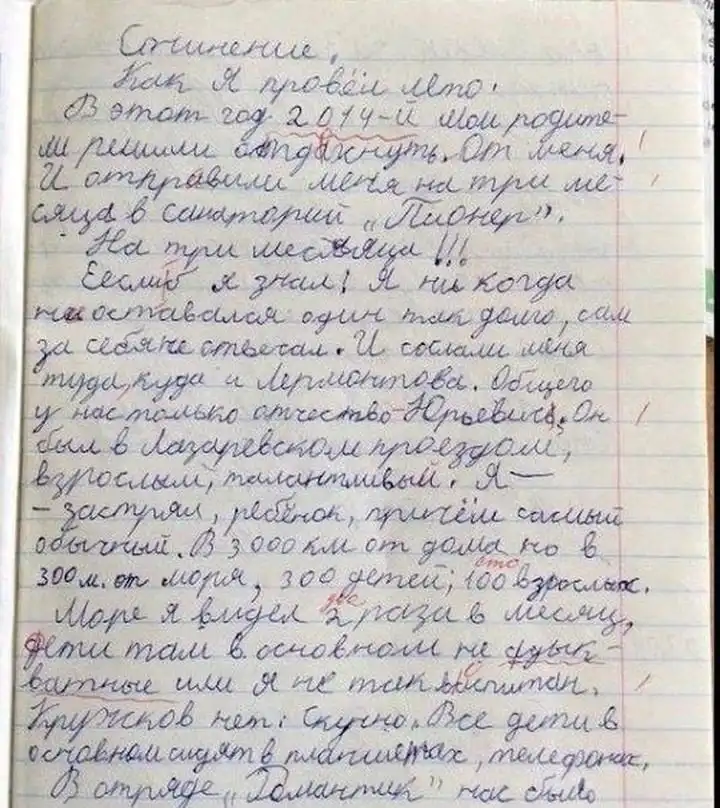 Сочинение.
Как я провёл лето.
В этот год 2014-й мои родите-
ли решили отдохнуть. От меня.
И отправили меня на три ме-
сяца в санаторий „Пионер".
На три месяца!!!
Если б я знал! Я ни когда
не оставался один так долго, сам
за себя не отвечал. И сослали меня
туда, куда и Лермонтова. Общего
у нас только отчество-Юрьевич. Он
был в Лазаревском проездом,
взрослым, талантливый. Я —
– застрял, ребёнок, причём самый
обычный. В 3000 км от дома но в
сто
300 м. от моря, 300 детей, 100 взрослых.
две
Море я видел 2 раза в месяц,
дети там в основном не адык-
ватные или я не так воспитан.
Кружков нет. Скучно. Все дети в
основном сидят в планшетах, телефонах.
В отряде „Романтик" нас было